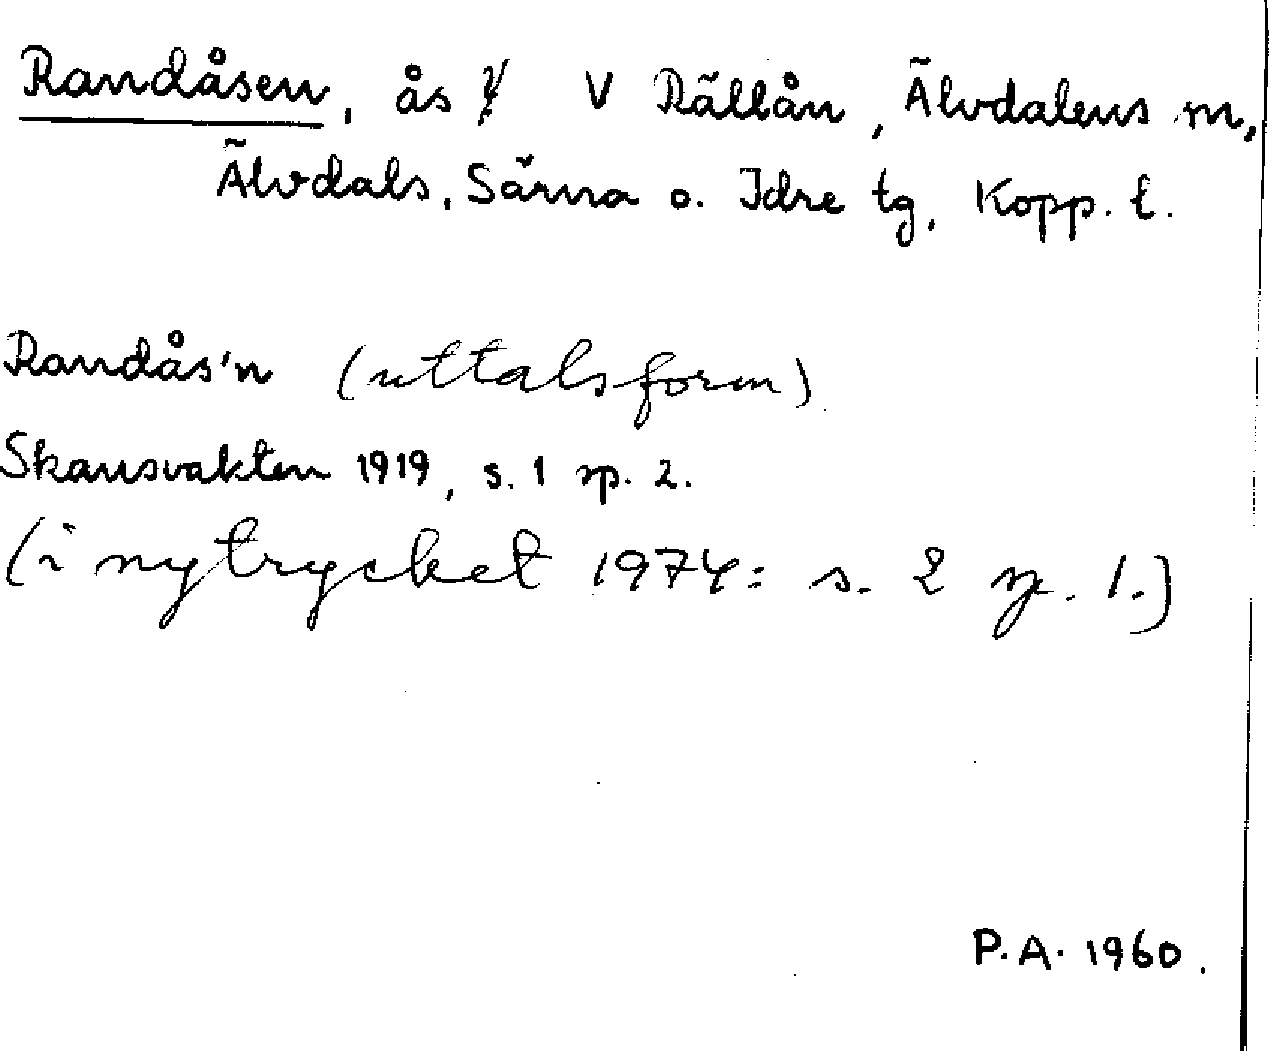 Randåsen, ås V Rällån, Älvdalens m,
Älvdals, Särna o. Idre tg, Kopp. l.
Randås'n (uttalsform)
Skansvakten 1919, s. 1 sp. 2.
(i nytrycket 1974: s. 2 sp. 1.)
P.A. 1960.